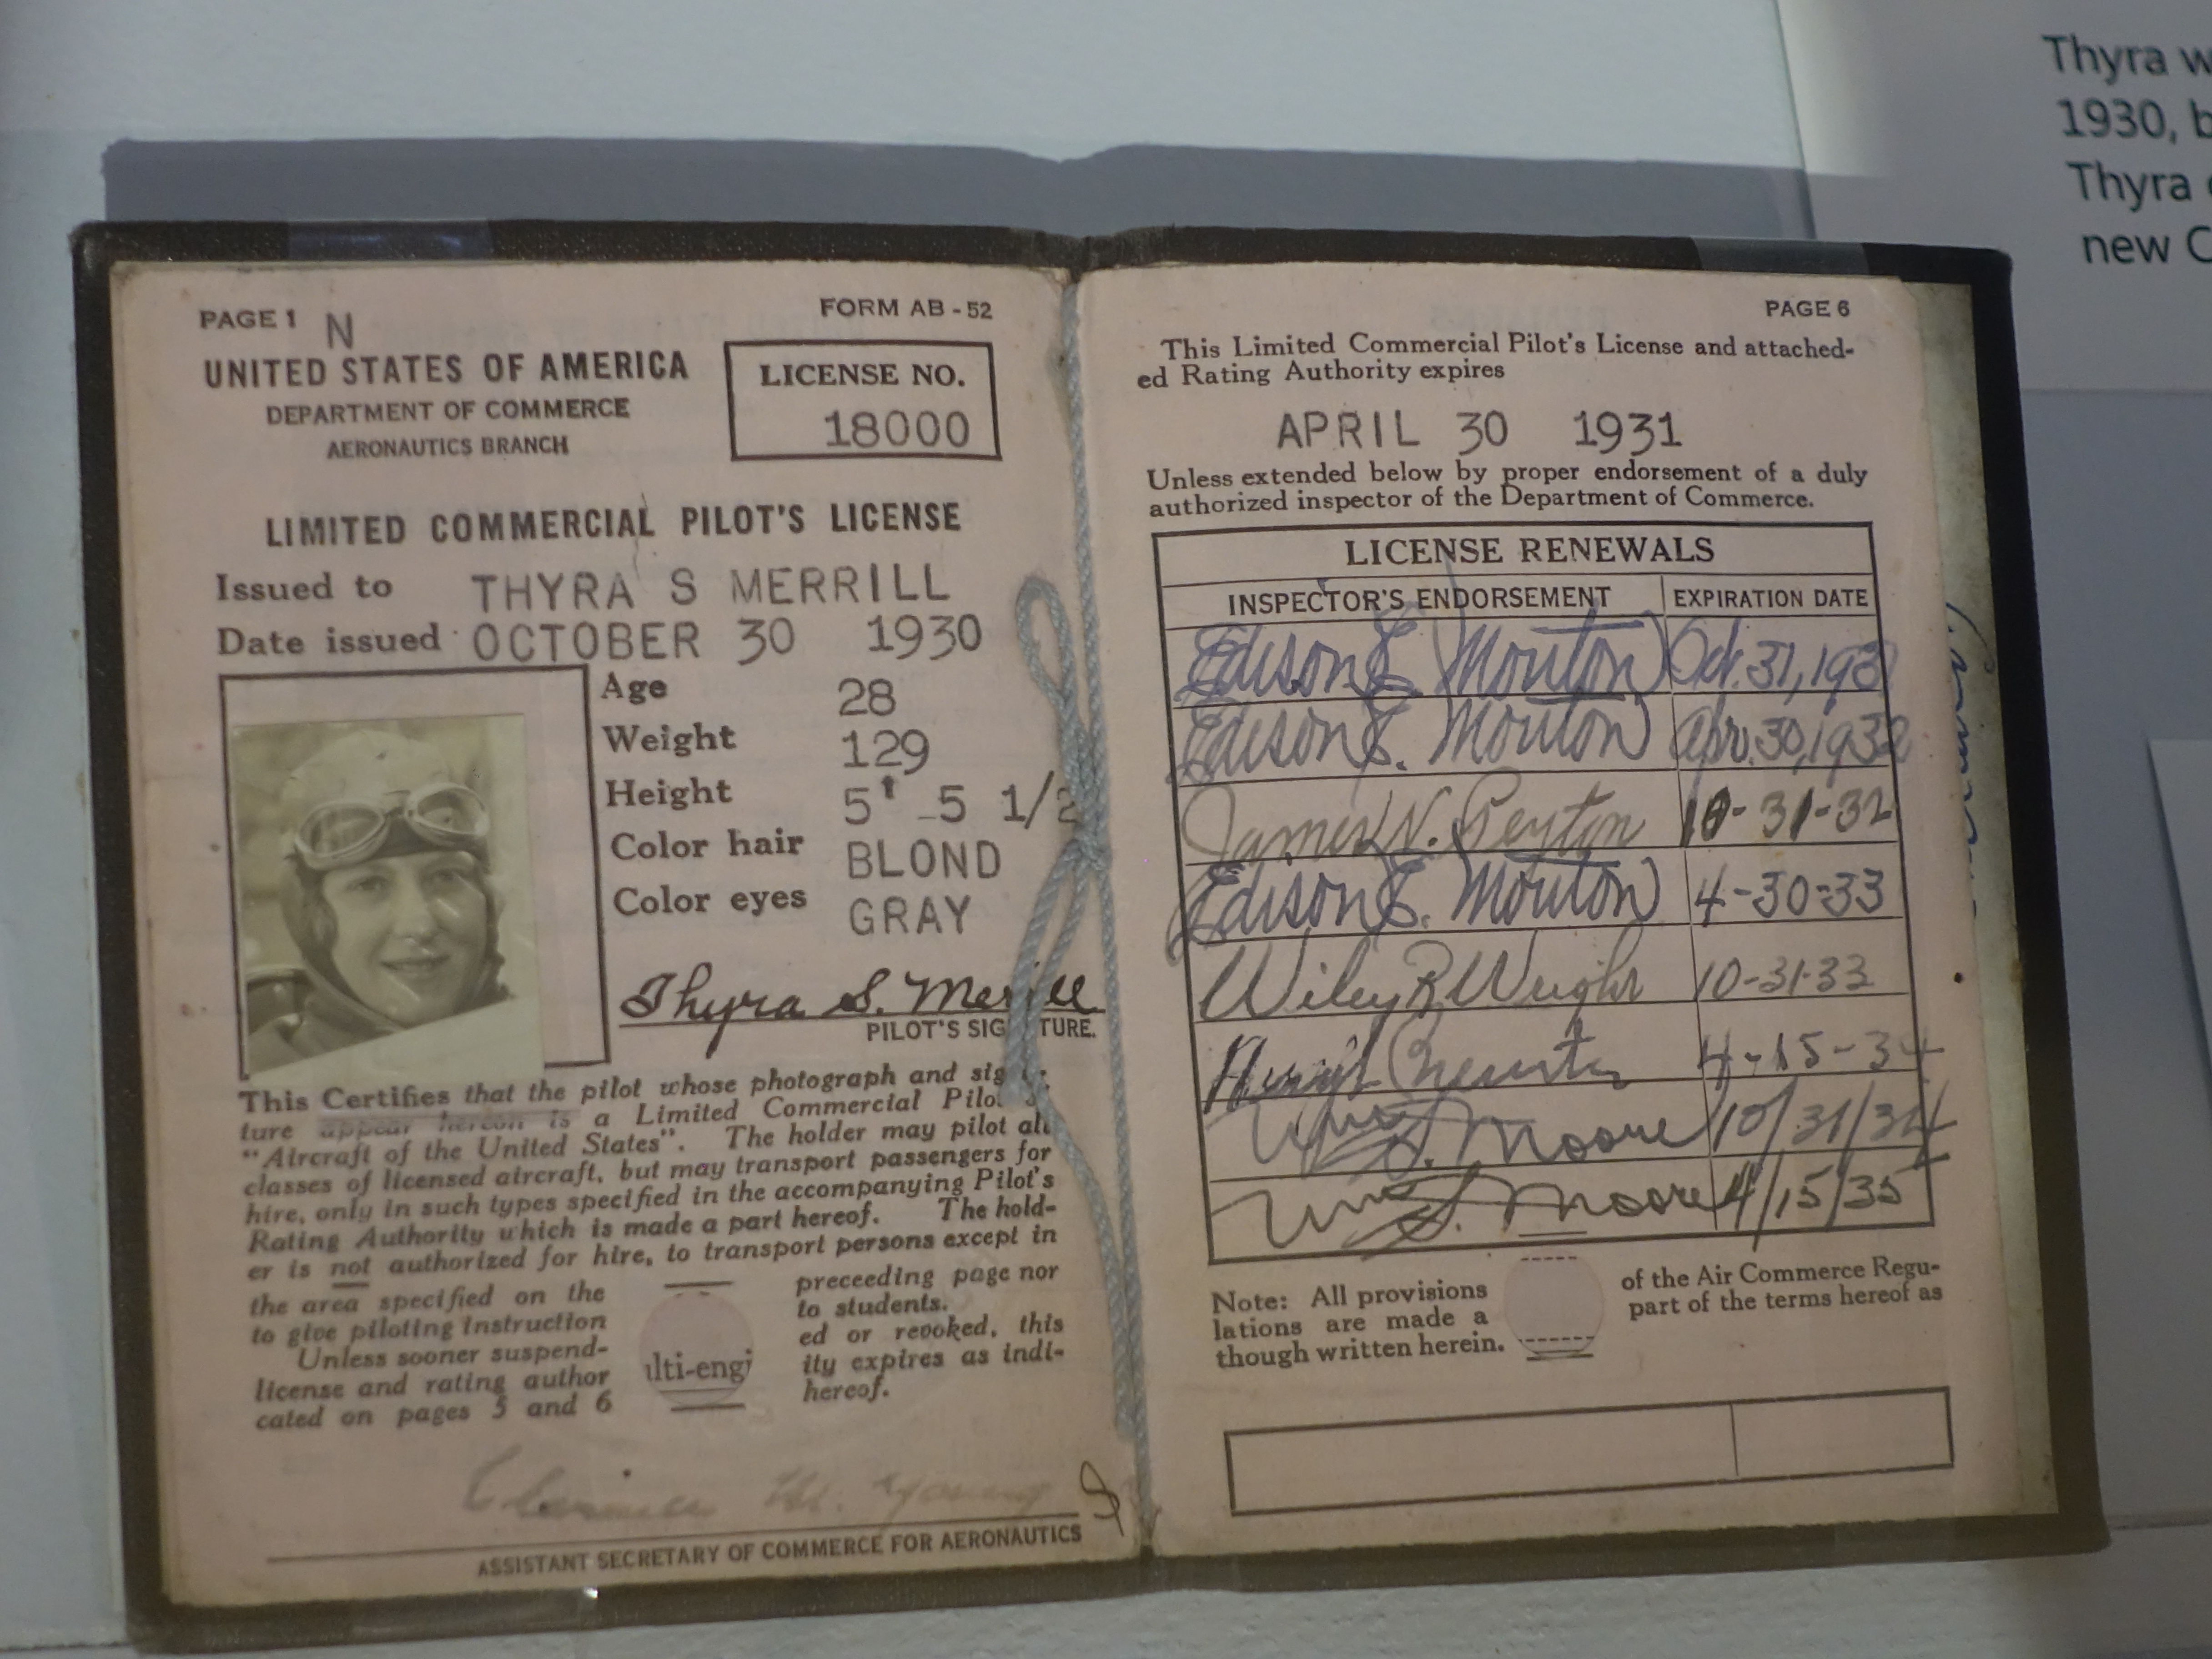 PAGE 1 N
FORM AB - 52
UNITED STATES OF AMERICA
DEPARTMENT OF COMMERCE
AERONAUTICS BRANCH
LICENSE NO.
18000
LIMITED COMMERCIAL PILOT'S LICENSE
Issued to THYRA S MERRILL
Date issued OCTOBER 30 1930
Age 28
Weight 129
Height 5' 5 1/2
Color hair BLOND
Color eyes GRAY
Thyra S. Merrill
PILOT'S SIG TURE.
This Certifies that the pilot whose photograph and sig
ture appear hereon is a Limited Commercial Pilot
"Aircraft of the United States". The holder may pilot all
classes of licensed aircraft, but may transport passengers for
hire, only in such types specified in the accompanying Pilot's
Rating Authority which is made a part hereof. The hold-
er is not authorized for hire, to transport persons except in
the area specified on the preceeding page nor
to give piloting instruction to students.
Unless sooner suspend- ed or revoked, this
license and rating author ity expires as indi-
cated on pages 5 and 6 hereof.
ulti-engi
Clarence M. Young
ASSISTANT SECRETARY OF COMMERCE FOR AERONAUTICS
PAGE 6
This Limited Commercial Pilot's License and attached-
ed Rating Authority expires
APRIL 30 1931
Unless extended below by proper endorsement of a duly
authorized inspector of the Department of Commerce.
LICENSE RENEWALS
INSPECTOR'S ENDORSEMENT EXPIRATION DATE
Edison E. Mouton Oct. 31, 1931
Edison E. Mouton Apr. 30, 1932
James N. Peyton 10-31-32
Edison E. Mouton 4-30-33
Wiley R. Wright 10-31-33
4-15-34
Wm S. Moore 10/31/34
Wm S. Moore 4/15/35
Note: All provisions of the Air Commerce Regu-
lations are made a part of the terms hereof as
though written herein.
Thyra w
1930, b
Thyra
new C